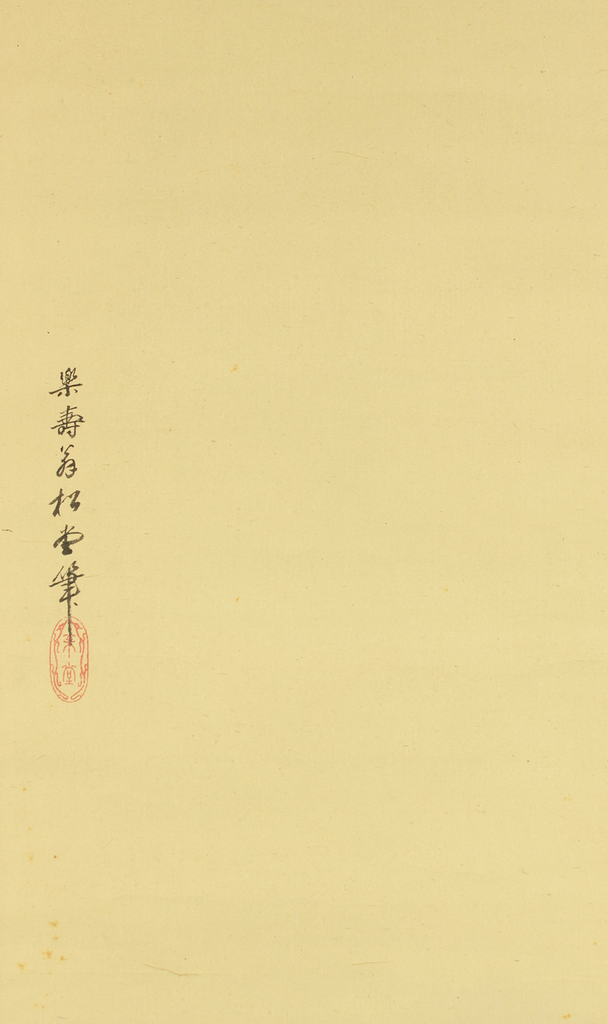 樂壽翁松堂筆